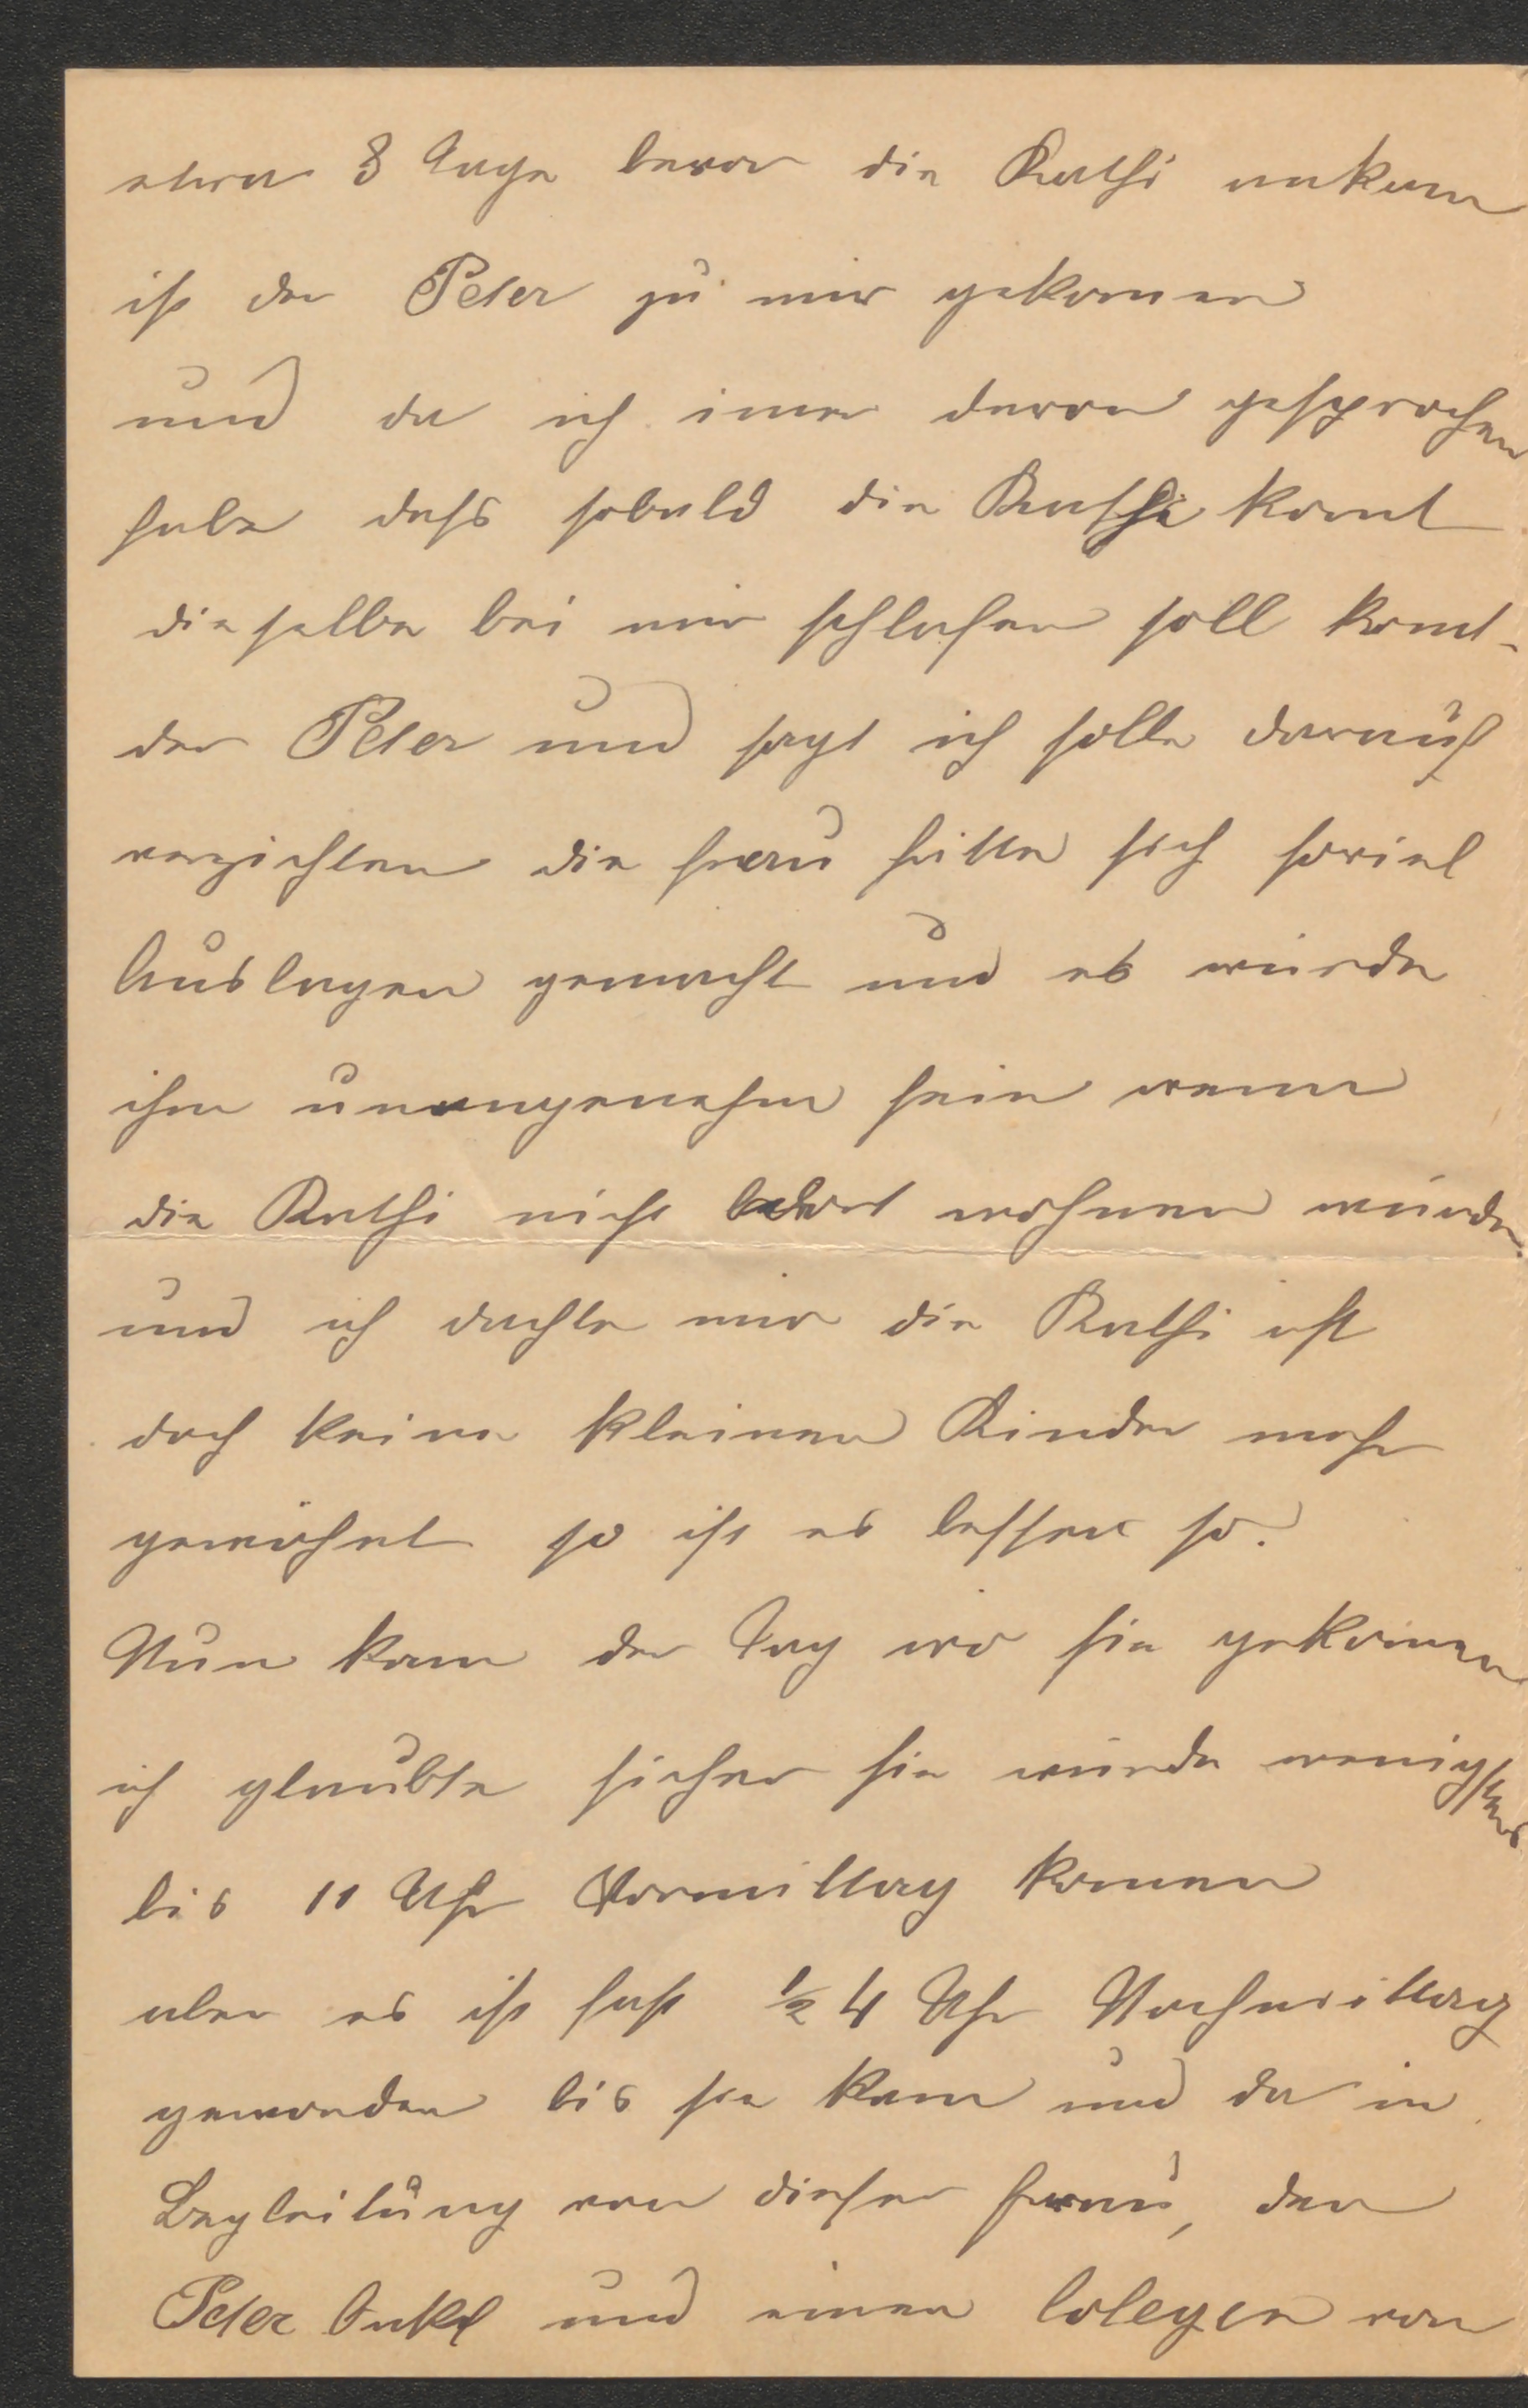 etwa 8 Tage bevor die Kathi ankam
ist der Peter zu mir gekomen
und da ich imer davon gesprochen
habe dass sobald die Kathi komt
dieselbe bei mir schlafen soll komt
der Peter und sagt ich solle darauf
verzichten die Frau hätte sich soviel
Auslagen gemacht und es würde
ihm unangenehm sein wenn
die Kathi nicht dort wohnen würde.
und ich dachte mir die Kathi ist
doch keine kleinen Kinder mehr
gewöhnt so ist es besser so.
Nun kam der Tag wo sie gekomen
ich glaubte sicher sie würde wenigstens
bis 11 Uhr Vormittag komen
aber es ist fast ½ 4 Uhr Nachmittag
geworden bis sie kam und da in
Begleitung von dieser Frau, den
Peter Onkl und einen Colegen von